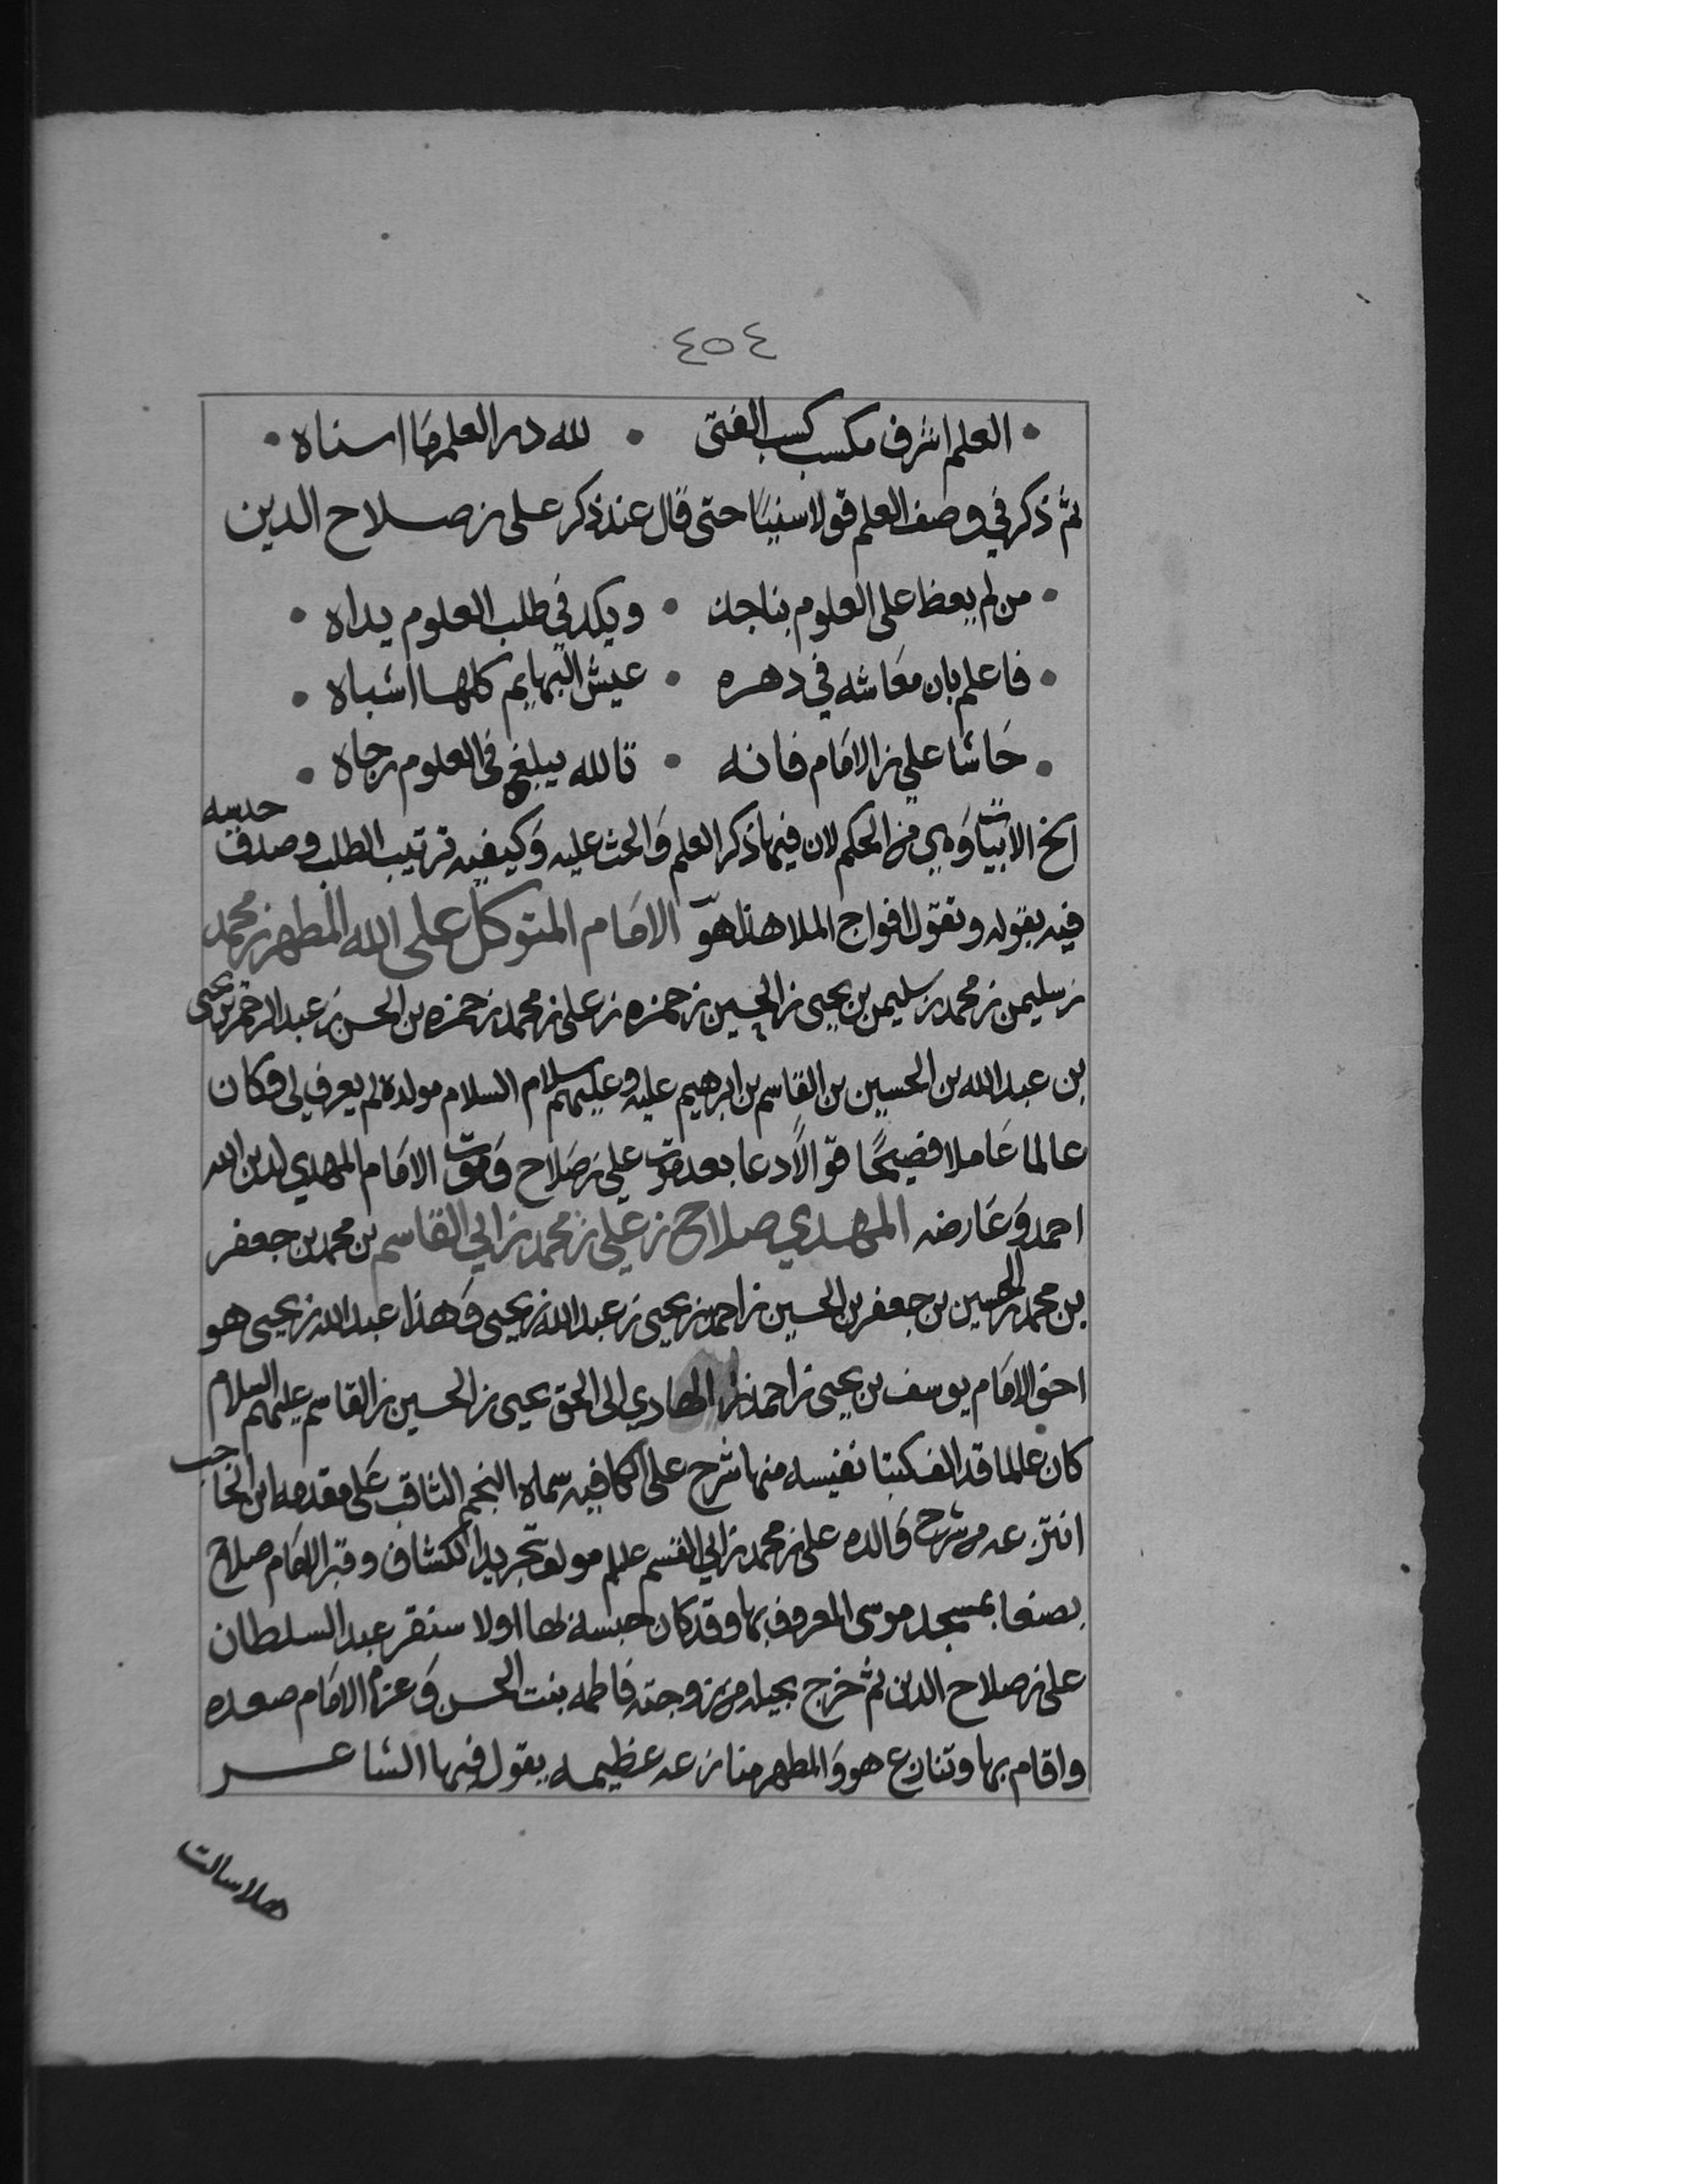 ٤٥٤
العلم اشرف مكسب كسب الفتى • لله در العلم ما اسناه
ثم ذكر في وصف العلم قولا سنيا حتى قال عند ذكر على بن صلاح الدين
من لم يعظ على العلوم بناجد • ويكد في طلب العلوم يداه
فاعلم بان معاشه في دهره • عيش البهايم كلها اشباه
حاشا علي بن الامام فانه • تالله يبلغ في العلوم رجاه
الخ الابيات وهي من الحكم لان فيها ذكر العلم والحث عليه وكيفيه ترتيب الطلب وصدف حدسه
فيه بقوله وتقول افواج الملا هذا هو الامام المتوكل على الله المطهر بن محمد
بن سليمن بن محمد بن سليمن بن يحيى بن الحسين بن حمزه بن على بن محمد بن حمزه بن الحسن بن عبد الرحمن بن يحيى
بن عبد الله بن الحسين بن القاسم بن ابرهيم عليه وعليهم سلام السلام مولده لم يعرف لي وكان
عالما عاملا فصيحا قوالا دعا بعد موت علي بن صلاح وموت الامام المهدي لدين الله
احمد وعارضه المهدي صلاح بن علي بن محمد بن ابي القاسم بن محمد بن جعفر
بن محمد بن الحسين بن جعفر بن الحسين بن احمد بن يحيى بن عبد الله بن يحيى وهذا عبد الله بن يحيى هو
اخو الامام يوسف بن يحيى بن احمد بن الهادي الى الحق يحيى بن الحسين بن القاسم عليهم السلام
كان عالما قد الف كتبا نفيسه منها شرح على الكافيه سماه النجم الثاقب على مقدمه ابن الحاجب
انتزعه من شرح والده على بن محمد بن ابي القسم عليلم مولف تجريد الكشاف وقبر الامام صلاح
بصنعا بمسجد موسى المعروف بها وقد كان حبسه لها اولا سنقر عبد السلطان
على بن صلاح الدين ثم خرج بحيله من زوجته فاطمه بنت الحسن وعزم الامام صعده
واقام بها وتنازع هو والمطهر منازعه عظيمه يقول فيها الشاعر
هلا سالت